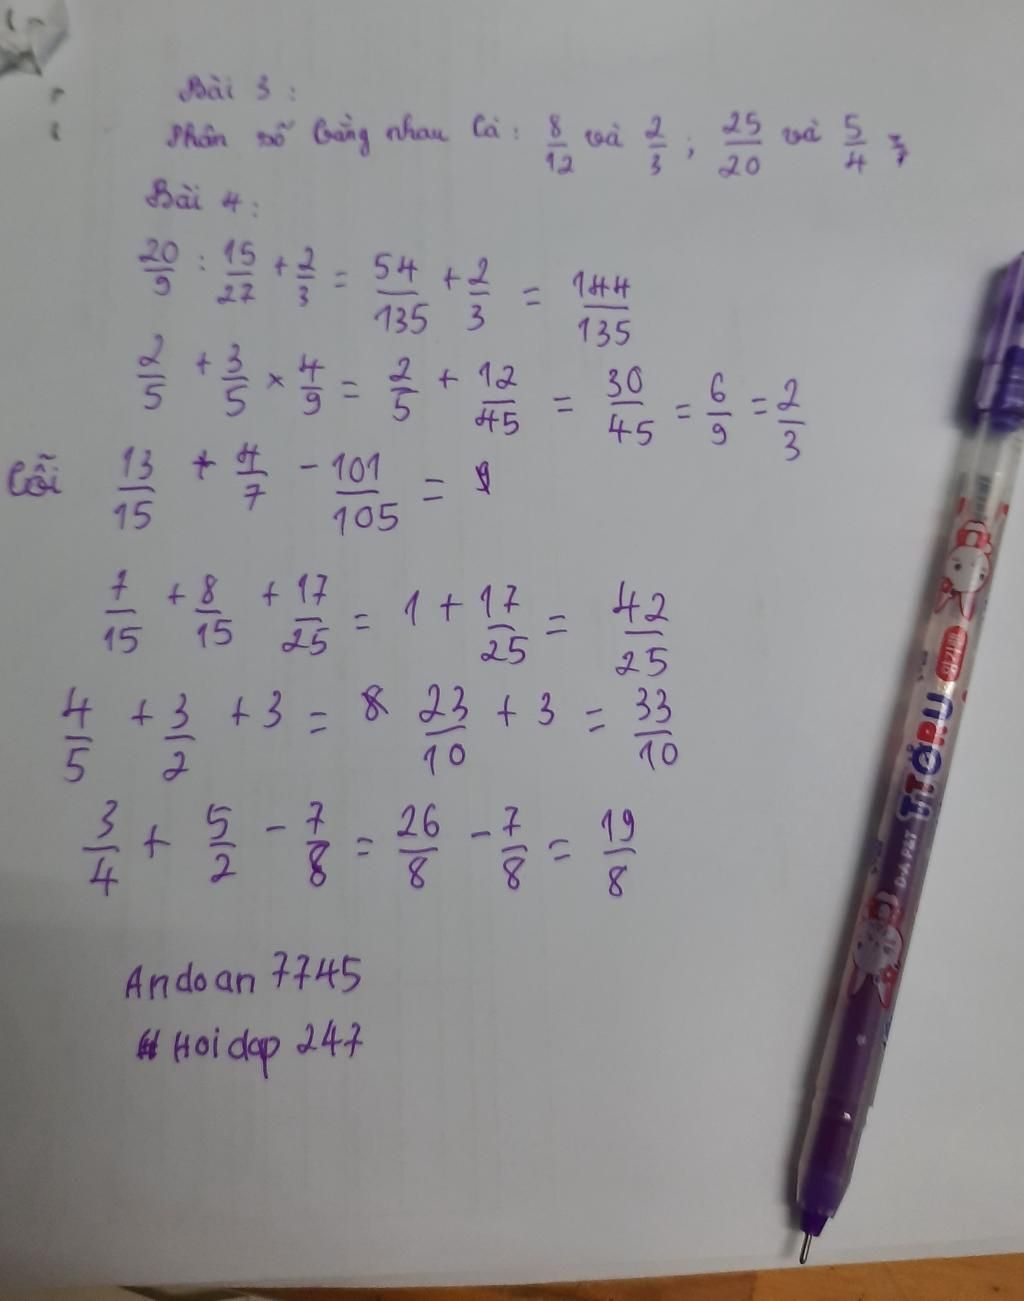 Bài 3 :
Phân số bằng nhau là : 8/12 và 2/3 ; 25/20 và 5/4
Bài 4 :
20/9 : 15/27 + 2/3 = 54/135 + 2/3 = 144/135
2/5 + 3/5 × 4/9 = 2/5 + 12/45 = 30/45 = 6/9 = 2/3
Lỗi 13/15 + 4/7 - 101/105 =
7/15 + 8/15 + 17/25 = 1 + 17/25 = 42/25
4/5 + 3/2 + 3 = 23/10 + 3 = 33/10
3/4 + 5/2 - 7/8 = 26/8 - 7/8 = 19/8
Andoan 7745
Hoidap 247
TITÔRU
D-A P&T